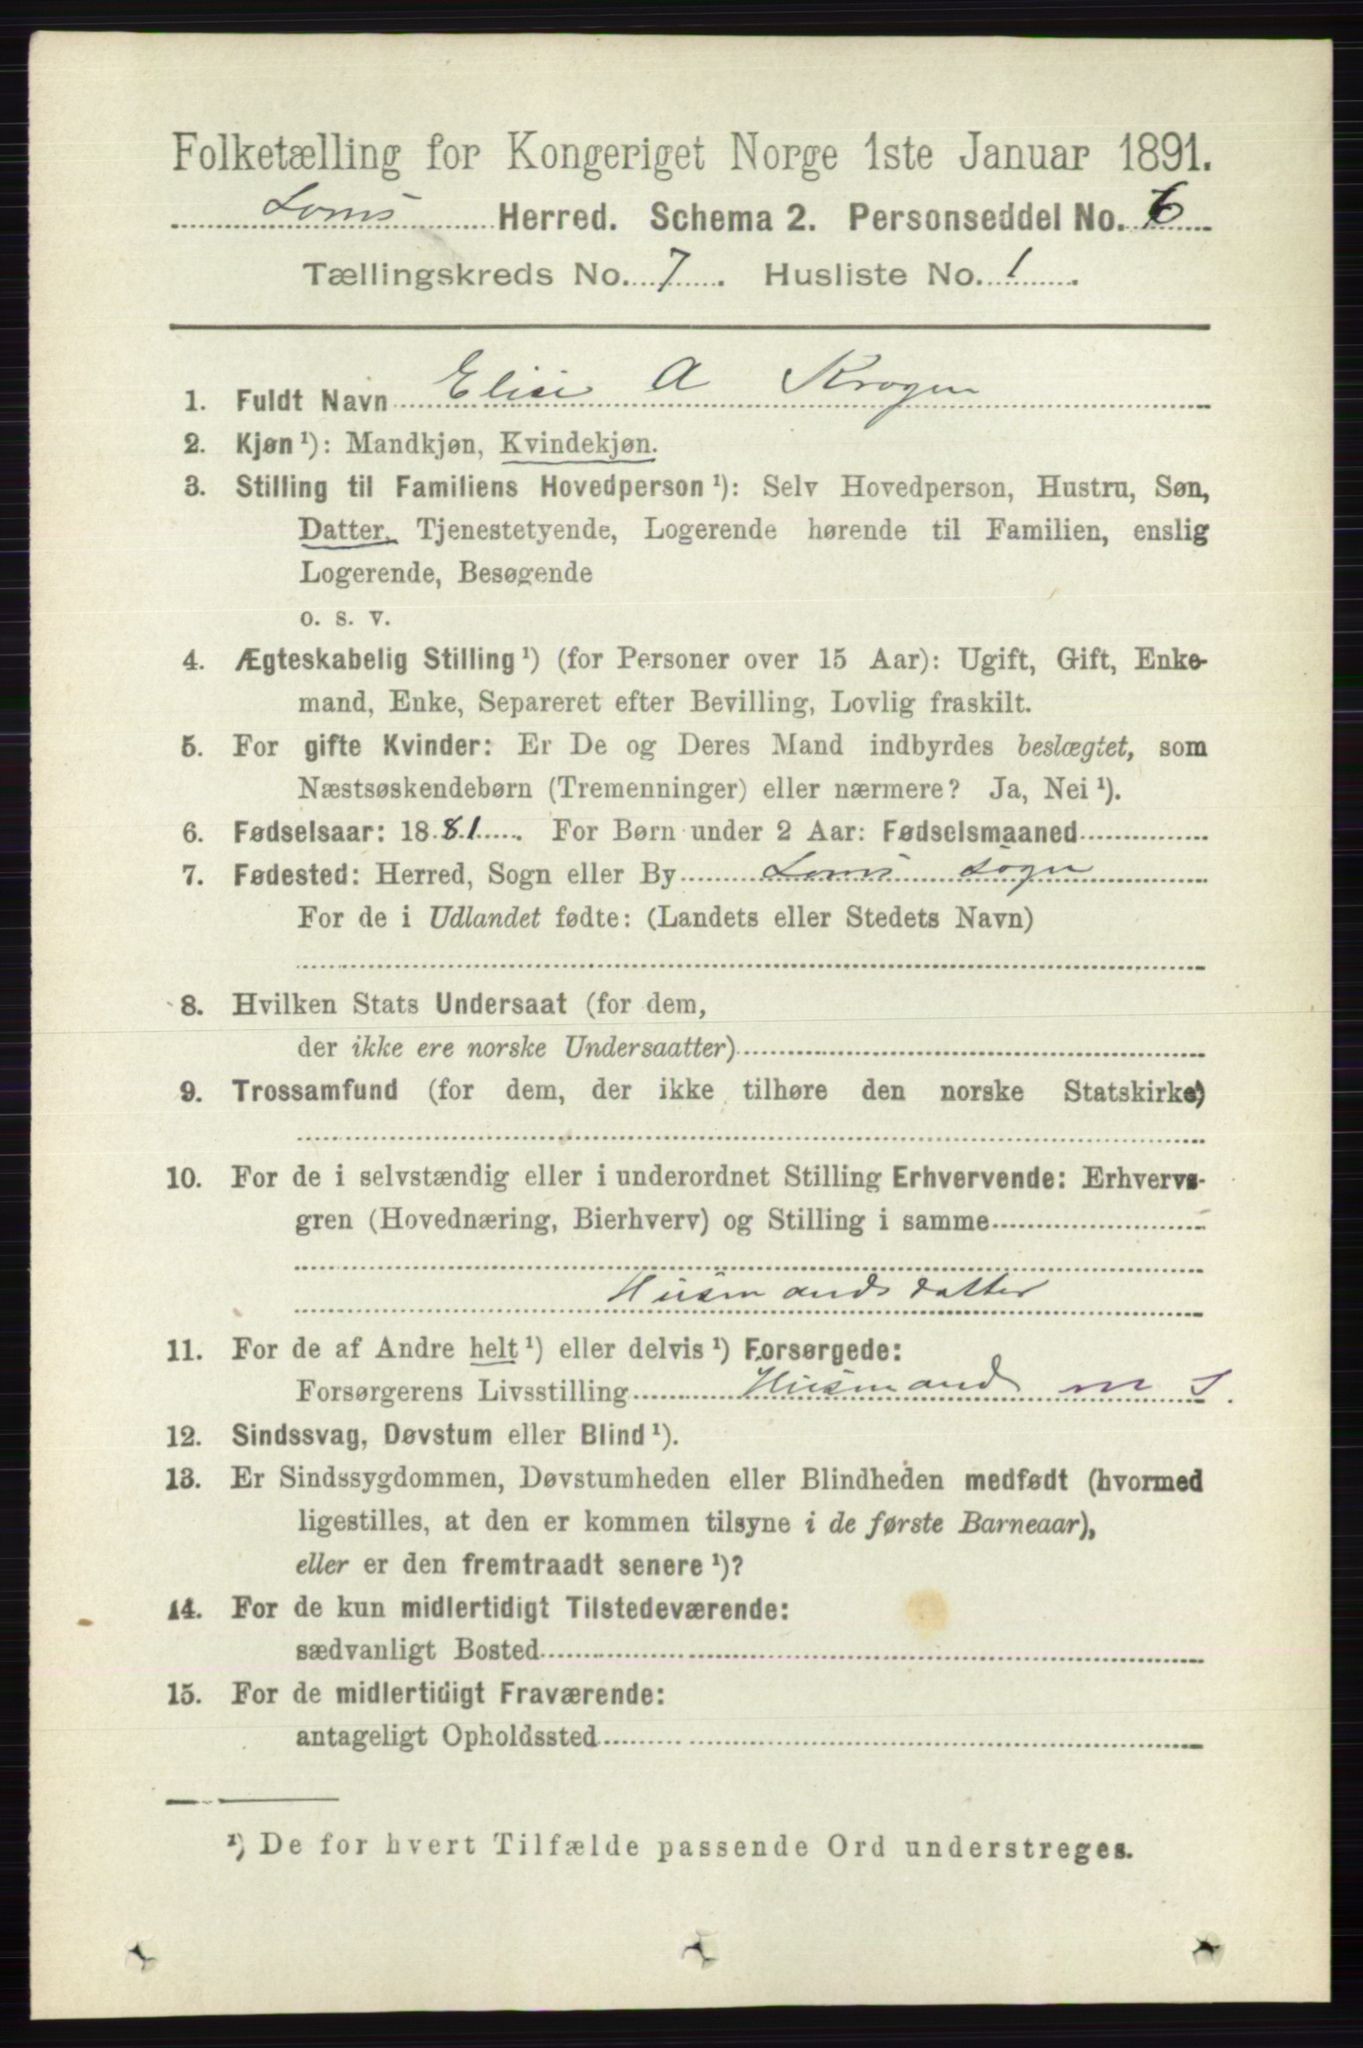 Folketælling for Kongeriget Norge 1ste Januar 1891.
Loms Herred. Schema 2. Personseddel No. 6
Tællingskreds No. 7. Husliste No. 1.
1. Fuldt Navn Elise A Krogen
2. Kjøn¹): Mandkjøn, Kvindekjøn.
3. Stilling til Familiens Hovedperson¹): Selv Hovedperson, Hustru, Søn,
Datter, Tjenestetyende, Logerende hørende til Familien, enslig
Logerende, Besøgende
o. s. v.
4. Ægteskabelig Stilling¹) (for Personer over 15 Aar): Ugift, Gift, Enke-
mand, Enke, Separeret efter Bevilling, Lovlig fraskilt.
5. For gifte Kvinder: Er De og Deres Mand indbyrdes beslægtet, som
Næstsøskendebørn (Tremenninger) eller nærmere? Ja, Nei¹).
6. Fødselsaar: 1881. For Børn under 2 Aar: Fødselsmaaned
7. Fødested: Herred, Sogn eller By Loms Sogn
For de i Udlandet fødte: (Landets eller Stedets Navn)
8. Hvilken Stats Undersaat (for dem,
der ikke ere norske Undersaatter)
9. Trossamfund (for dem, der ikke tilhøre den norske Statskirke)
10. For de i selvstændig eller i underordnet Stilling Erhvervende: Erhvervs-
gren (Hovednæring, Bierhverv) og Stilling i samme
Husmandsdatter
11. For de af Andre helt¹) eller delvis¹) Forsørgede:
Forsørgerens Livsstilling Husmand m J.
12. Sindssvag, Døvstum eller Blind¹).
13. Er Sindssygdommen, Døvstumheden eller Blindheden medfødt (hvormed
ligestilles, at den er kommen tilsyne i de første Barneaar),
eller er den fremtraadt senere¹)?
14. For de kun midlertidigt Tilstedeværende:
sædvanligt Bosted
15. For de midlertidigt Fraværende:
antageligt Opholdssted
¹) De for hvert Tilfælde passende Ord understreges.